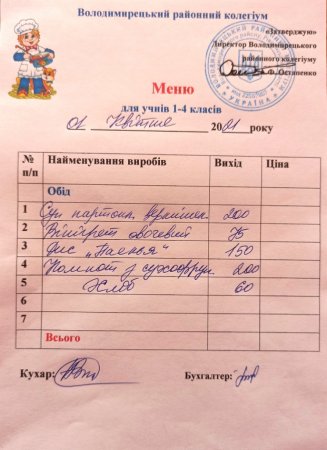 Володимирецький районний колегіум
«Затверджую»
Директор Володимирецького
районного колегіуму
О. Остапенко
УКРАЇНА
Меню
для учнів 1-4 класів
01 Квітня 2021 року
№ п/п Найменування виробів Вихід Ціна
Обід
1 Суп картопл. вермішел. 200
2 Вінегрет овочевий 75
3 150
4 Компот з сухофрук. 200
5 Хліб 60
6
7
Всього
Кухар: Бухгалтер: